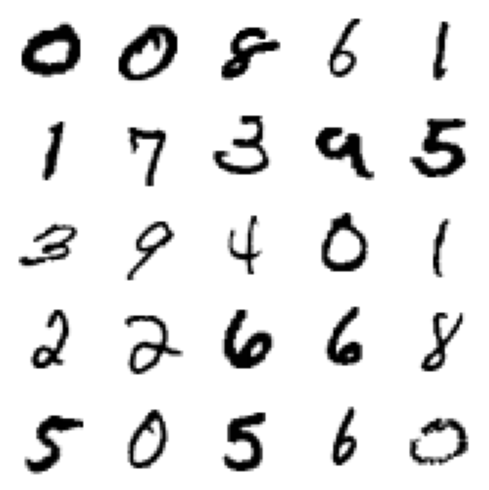 0 0 8 6 1
1 7 3 9 5
3 9 4 0 1
2 2 6 6 8
5 0 5 6 0